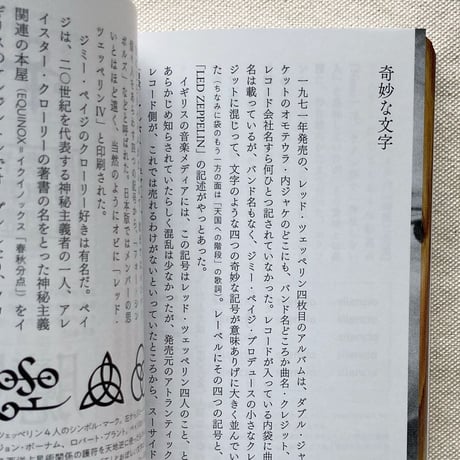 奇妙な文字
一九七一年発売の、レッド・ツェッペリン四枚目のアルバムは、ダブル・ジャ
ケットのオモテウラ・内ジャケのどこにも、バンド名どころか曲名・クレジット、
レコード会社名すら何ひとつ記されていなかった。レコードが入っている内袋に曲
名は載っているが、バンド名もなく、ジミー・ペイジ・プロデュースの小さなクレ
ジットに混じって、文字のような四つの奇妙な記号が意味ありげに大きく並んでい
た（ちなみに袋のもう一方の面は「天国への階段」の歌詞）。レーベルにその四つの記号と、
「LED ZEPPELIN」の記述がやっとあった。
イギリスの音楽メディアには、この記号はレッド・ツェッペリン四人のこと、と
あらかじめ知らされていたらしく混乱は少なかったが、発売元のアトランティック
レコード側が、これでは売れるわけがないといっていたところから、スーサイド
四つの記号から、「フォー・シン
ボルズ」などと呼ばれた。日本ではメンバーの思
いとはほど遠く、当然のようにオビに「レッド・
ツェッペリンⅣ」と印刷された。
ジミー・ペイジのクローリー好きは有名だ。ペイ
ジは、二〇世紀を代表する神秘主義者の一人、アレ
イスター・クローリーの著書の名をとった神秘主義
関連の本屋（EQUINOX=イクイノックス「春秋分点」）をイ
ギリスの
ツェッペリン4人のシンボル・マーク。左から
ジョン・ボーナム、ロバート・プラント、